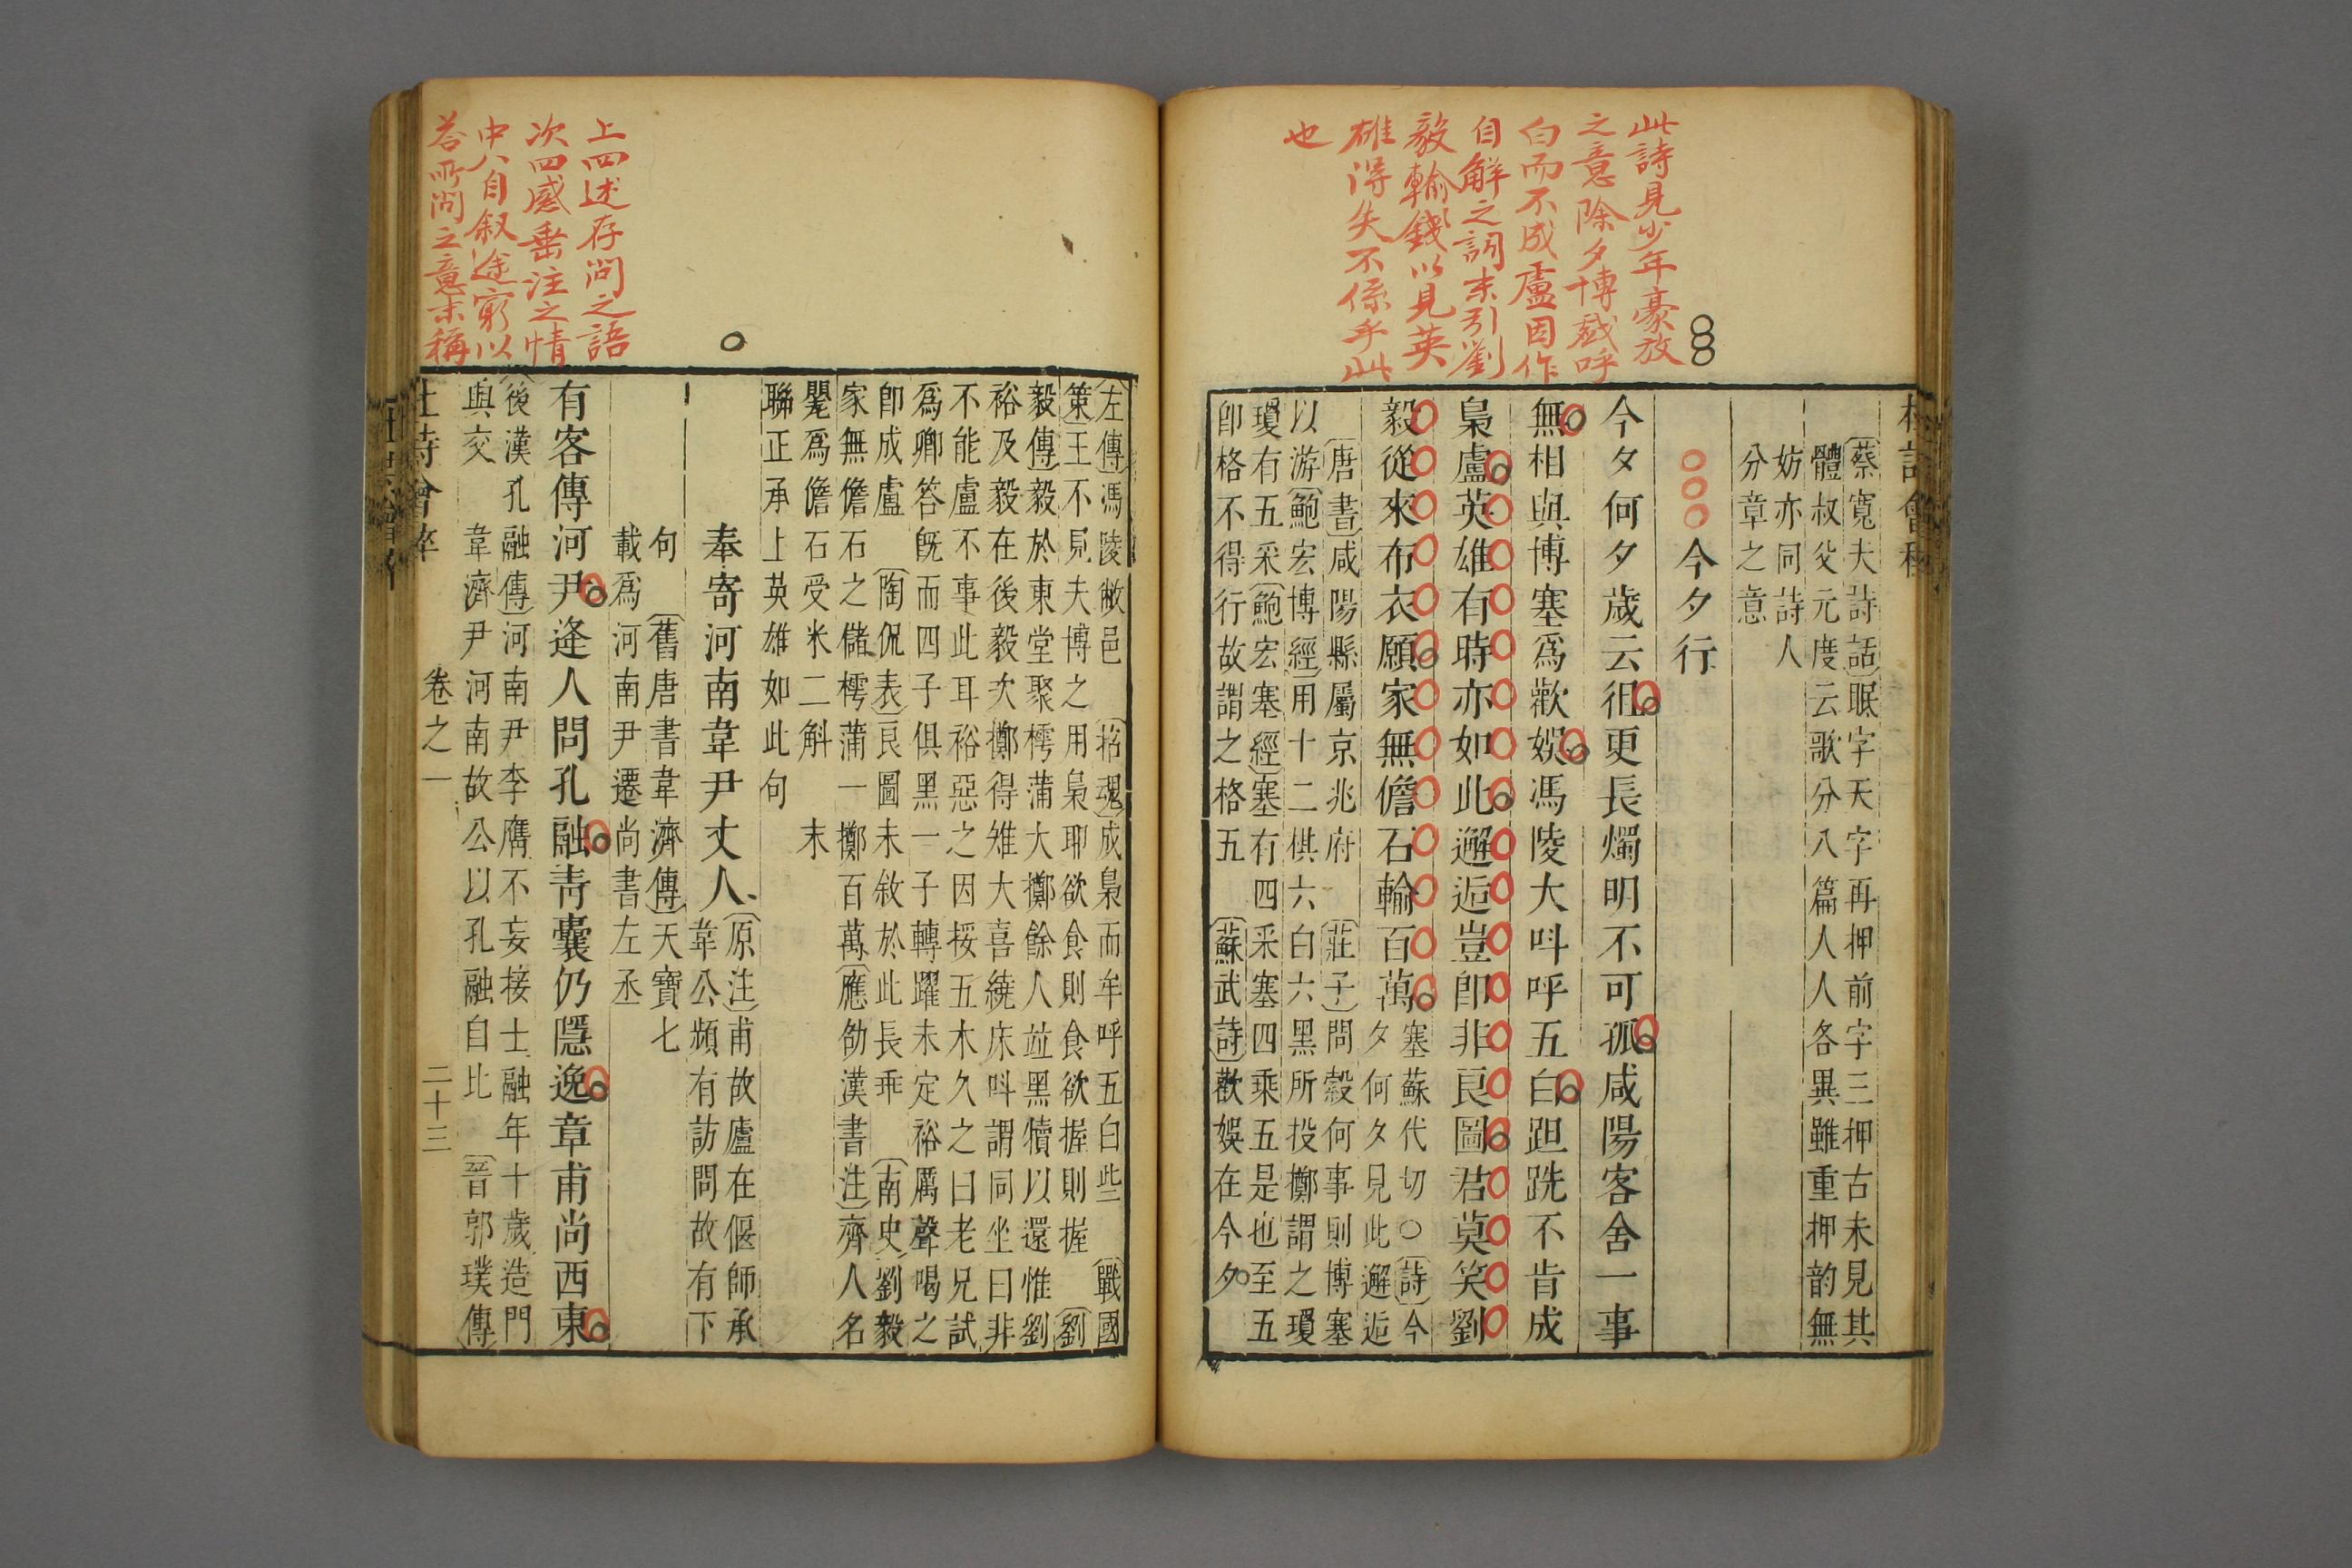 此詩見少年豪放
之意除夕博戯呼
白而不成盧因作
自解之詞末引劉
毅輸錢以見英
雄得失不係乎此
也
蔡寬夫詩話眠字天字再押前字三押古未見其
體叔父元度云歌分八篇人人各異雖重押韵無
妨亦同詩人
分章之意
今夕行
今夕何夕歲云徂更長燭明不可孤咸陽客舍一事
無相與博塞爲歡娛馮陵大呌呼五白跙跣不肯成
梟盧英雄有時亦如此邂逅豈卽非良圖君莫笑劉
毅從來布衣願家無儋石輸百萬
塞蘇代切○詩今
夕何夕見此邂逅
唐書咸陽縣屬京兆府 莊子問穀何事則博塞
以游鮑宏博經用十二棋六白六黑所投擲謂之瓊
瓊有五采鮑宏塞經塞有四采塞四乘五是也至五
卽格不得行故謂之格五 蘇武詩歡娛在今夕
左傳馮陵敝邑 招魂成梟而牟呼五白些 戰國
策王不見夫博之用梟耶欲食則食欲握則握 劉
毅傳毅於東堂聚樗蒲大擲餘人竝黑犢以還惟劉
裕及毅在後毅次擲得雉大喜繞床呌謂同坐曰非
不能盧不事此耳裕惡之因挼五木久之曰老兄試
爲卿答旣而四子俱黑一子轉躍未定裕厲聲喝之
卽成盧 陶侃表良圖未敘於此長乖 南史劉毅
家無儋石之儲樗蒲一擲百萬應劭漢書注齊人名
甖爲儋石受米二斛 末
聯正承上英雄如此句
奉寄河南韋尹丈人
原注甫故廬在偃師承
韋公頻有訪問故有下
句 舊唐書韋濟傳天寶七
載爲河南尹遷尚書左丞
有客傳河尹逢人問孔融靑囊仍隱逸章甫尚西東
後漢孔融傳河南尹李膺不妄接士融年十歲造門
與交 韋濟尹河南故公以孔融自比 晉郭璞傳
卷之一
二十三
上四述存問之語
次四感垂注之情
中八自叙途窮以
答所問之意末稱